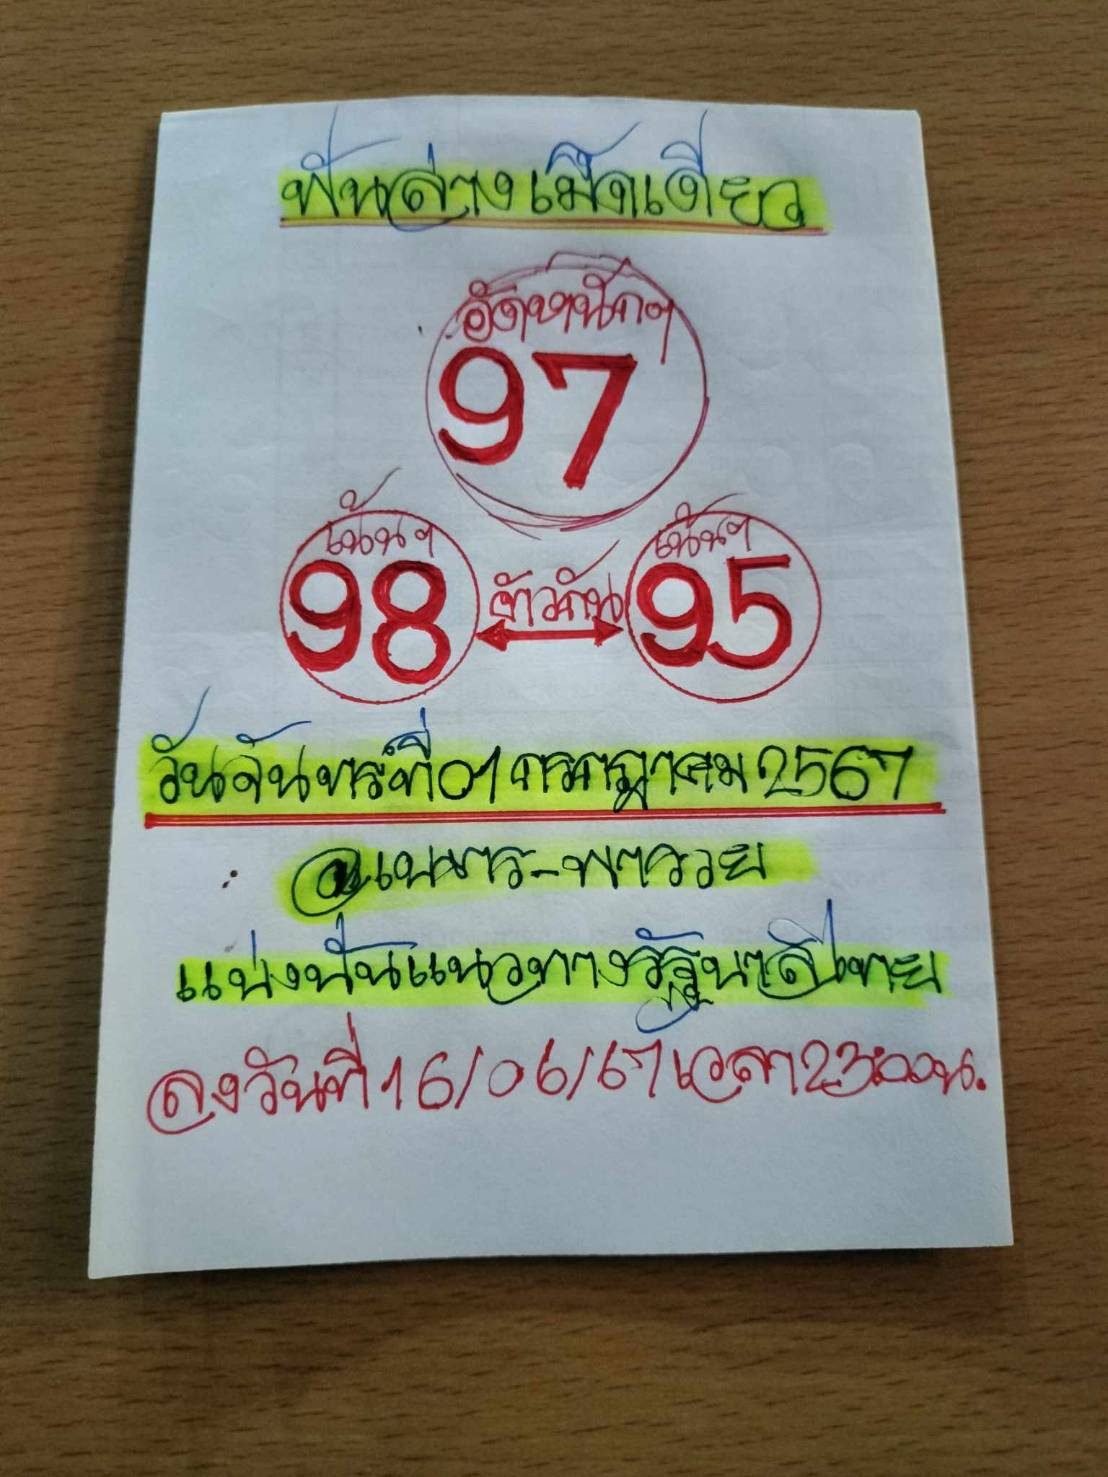 ฟันล่างเม็ดเดียว
อัดหนักๆ
97
เน้นๆ เน้นๆ
98 ตัวกัน 95
วันจันทร์ที่01กรกฎาคม2567
@เนตร-พารวย
แบ่งปันแนวทางรัฐบาลไทย
ลงวันที่16/06/67เวลา23:00น.